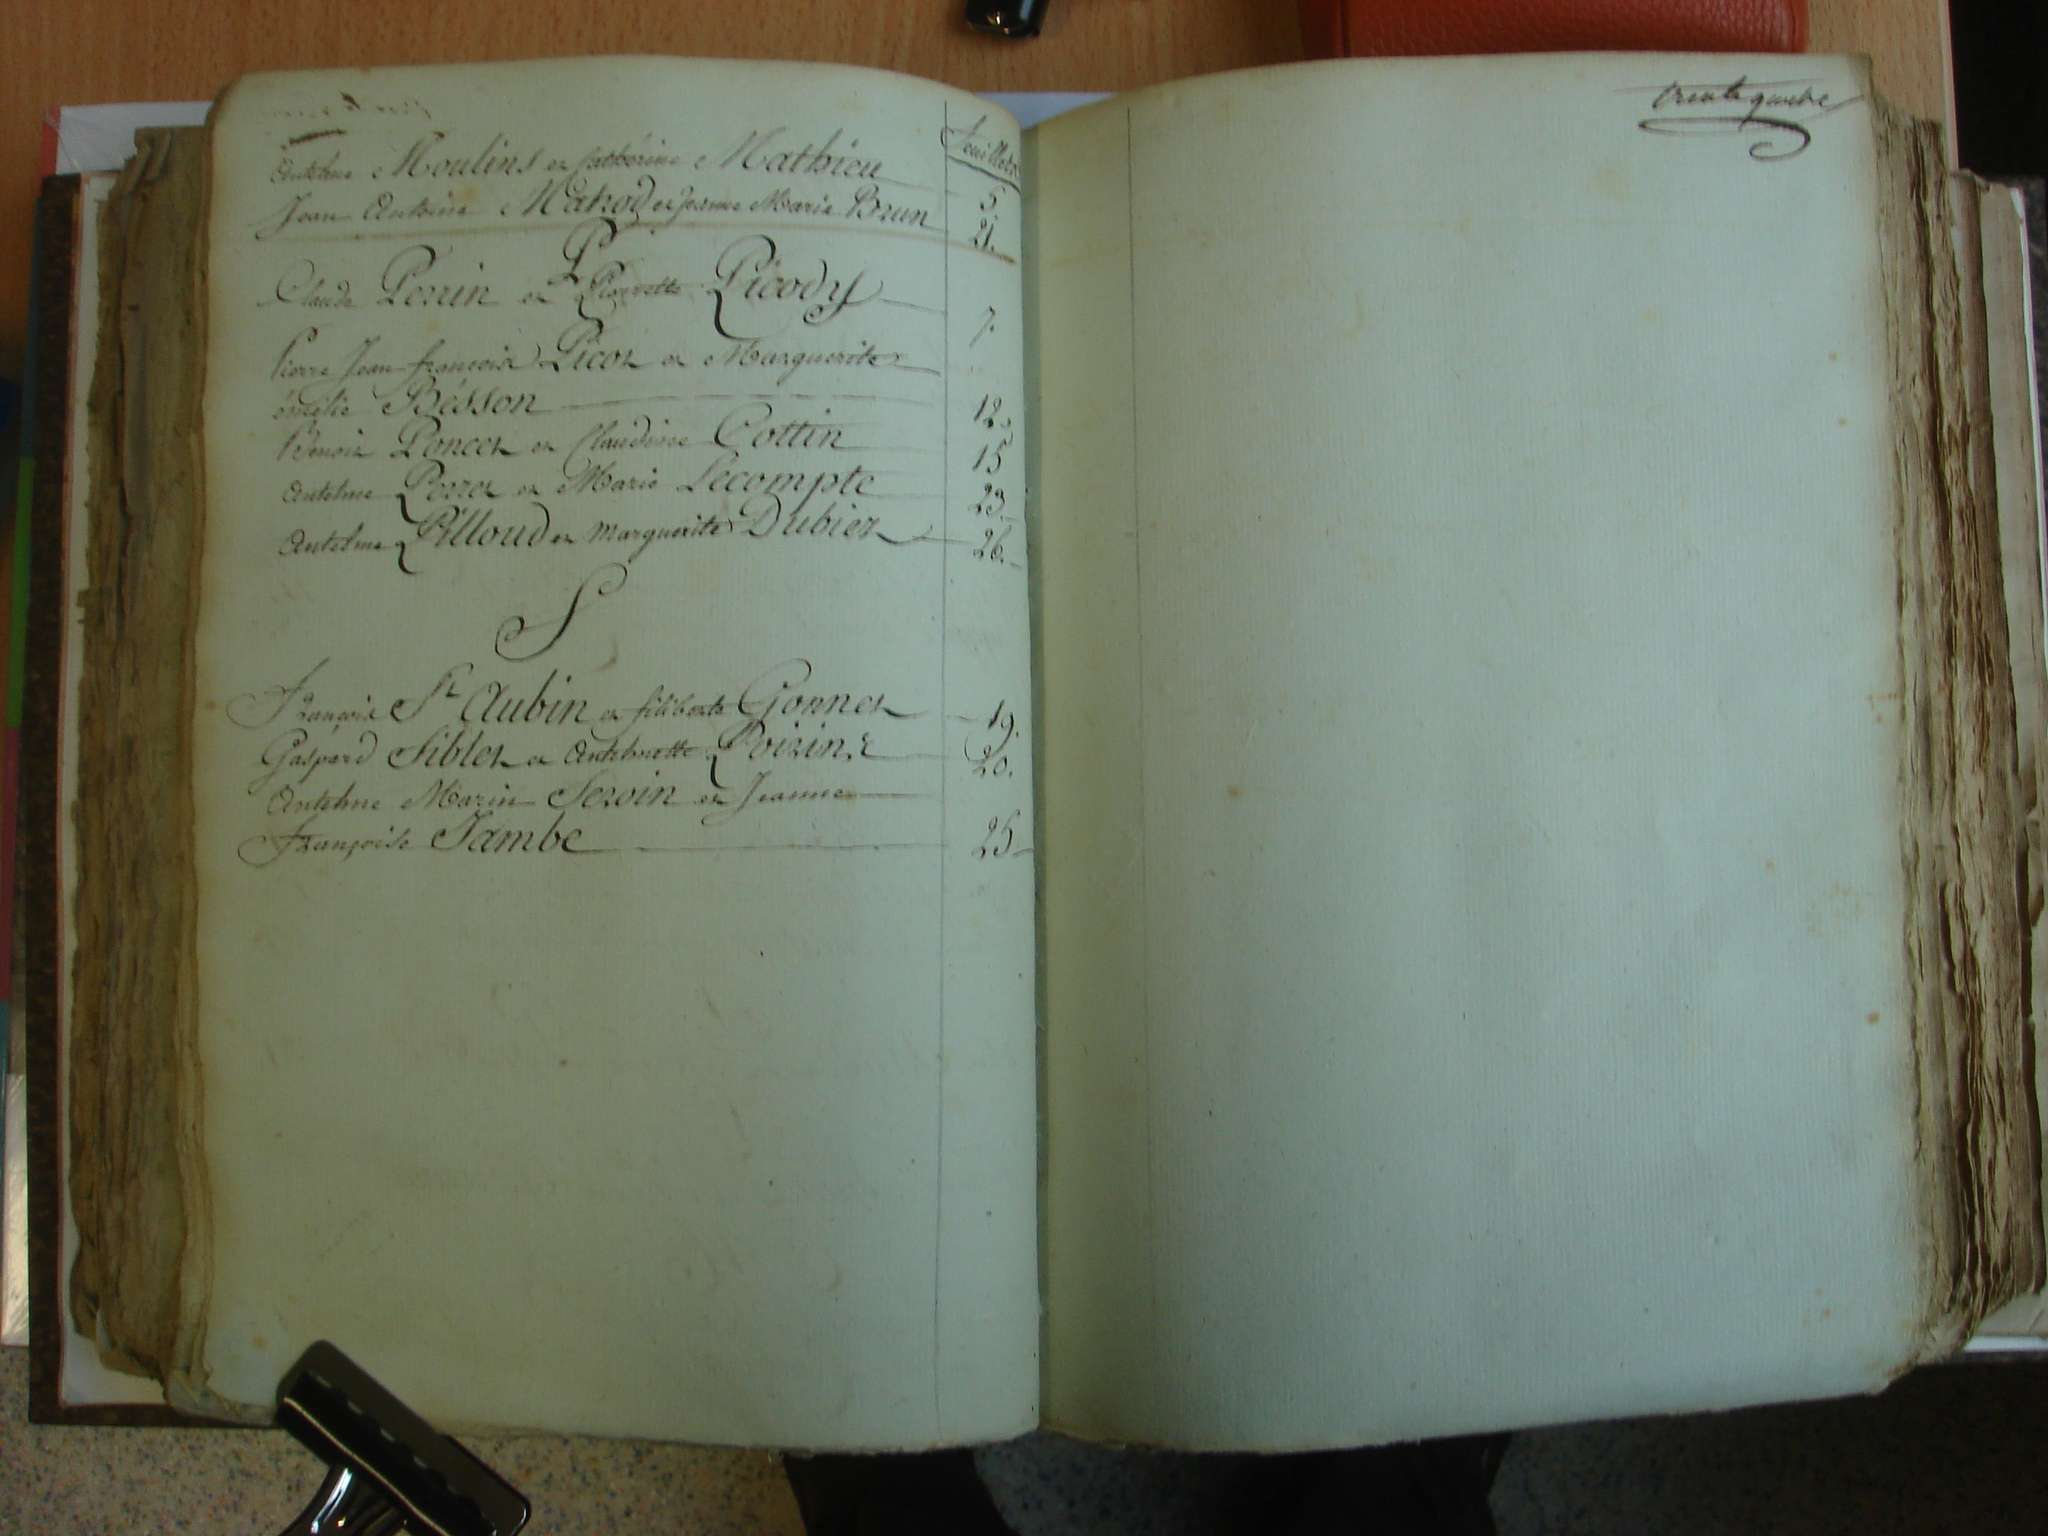 feuillets
antelme Moulins et Cathérine Mathieu 5
Jean Antoine Marod et Jeanne Marie Brun 21.
P
Claude Perrin et Pierrette Picody 7.
Pierre Jean françois Picot et Marguerite
émélie Bésson 12.
Benoit Poncet et Claudine Cottin 15
antelme et Marie Lecompte 23
antelme Pilloud et marguerite Dubiet 26.
S
François St. Aubin et filiberte Gonnet 19.
Gaspard Siblet et antelmette 20.
antelme Marin Seroin et Jeanne
Françoise Jambe 25
trente quatre